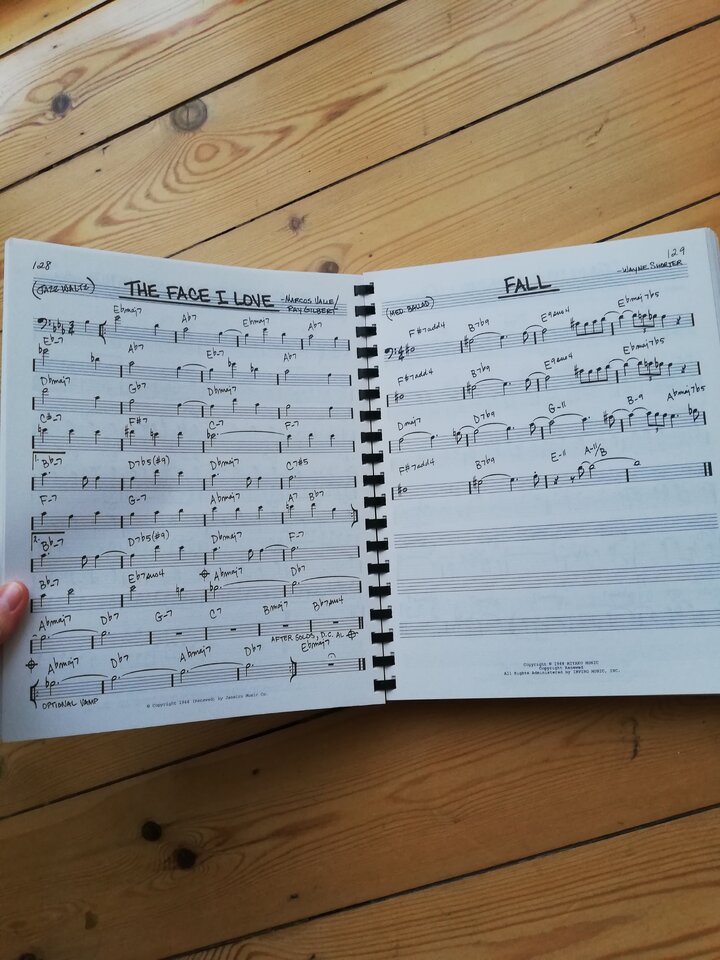 128
(JAZZ WALTZ) THE FACE I LOVE - MARCOS VALLE/
RAY GILBERT
Ebmaj7 Ab7 Ebmaj7 Ab7
Eb-7 Ab7 Eb-7 Ab7
Dbmaj7 Gb7 Dbmaj7
C#-7 F#7 C-7 F-7
1. Bb-7 D7b5(#9) Dbmaj7 C7#5
F-7 G-7 Abmaj7 A7 Bb7
2. Bb-7 D7b5(#9) Dbmaj7 F-7
Bb-7 Eb7sus4 Abmaj7 Db7
Abmaj7 Db7 G-7 C7 Bmaj7 Bb7sus4
AFTER SOLOS, D.C. AL
Abmaj7 Db7 Abmaj7 Db7 Ebmaj7
OPTIONAL VAMP
© Copyright 1968 (Renewed) by Janeiro Music Co.
129
(MED. BALLAD) FALL - WAYNE SHORTER
F#7add4 B7b9 E9sus4 Ebmaj7b5
F#7add4 B7b9 E9sus4 Ebmaj7b5
Dmaj7 D7b9 G-11 B-9 Abmaj7b5
F#7add4 B7b9 E-11 A-11/B
Copyright © 1968 MIYAKO MUSIC
Copyright Renewed
All Rights Administered by IRVING MUSIC, INC.